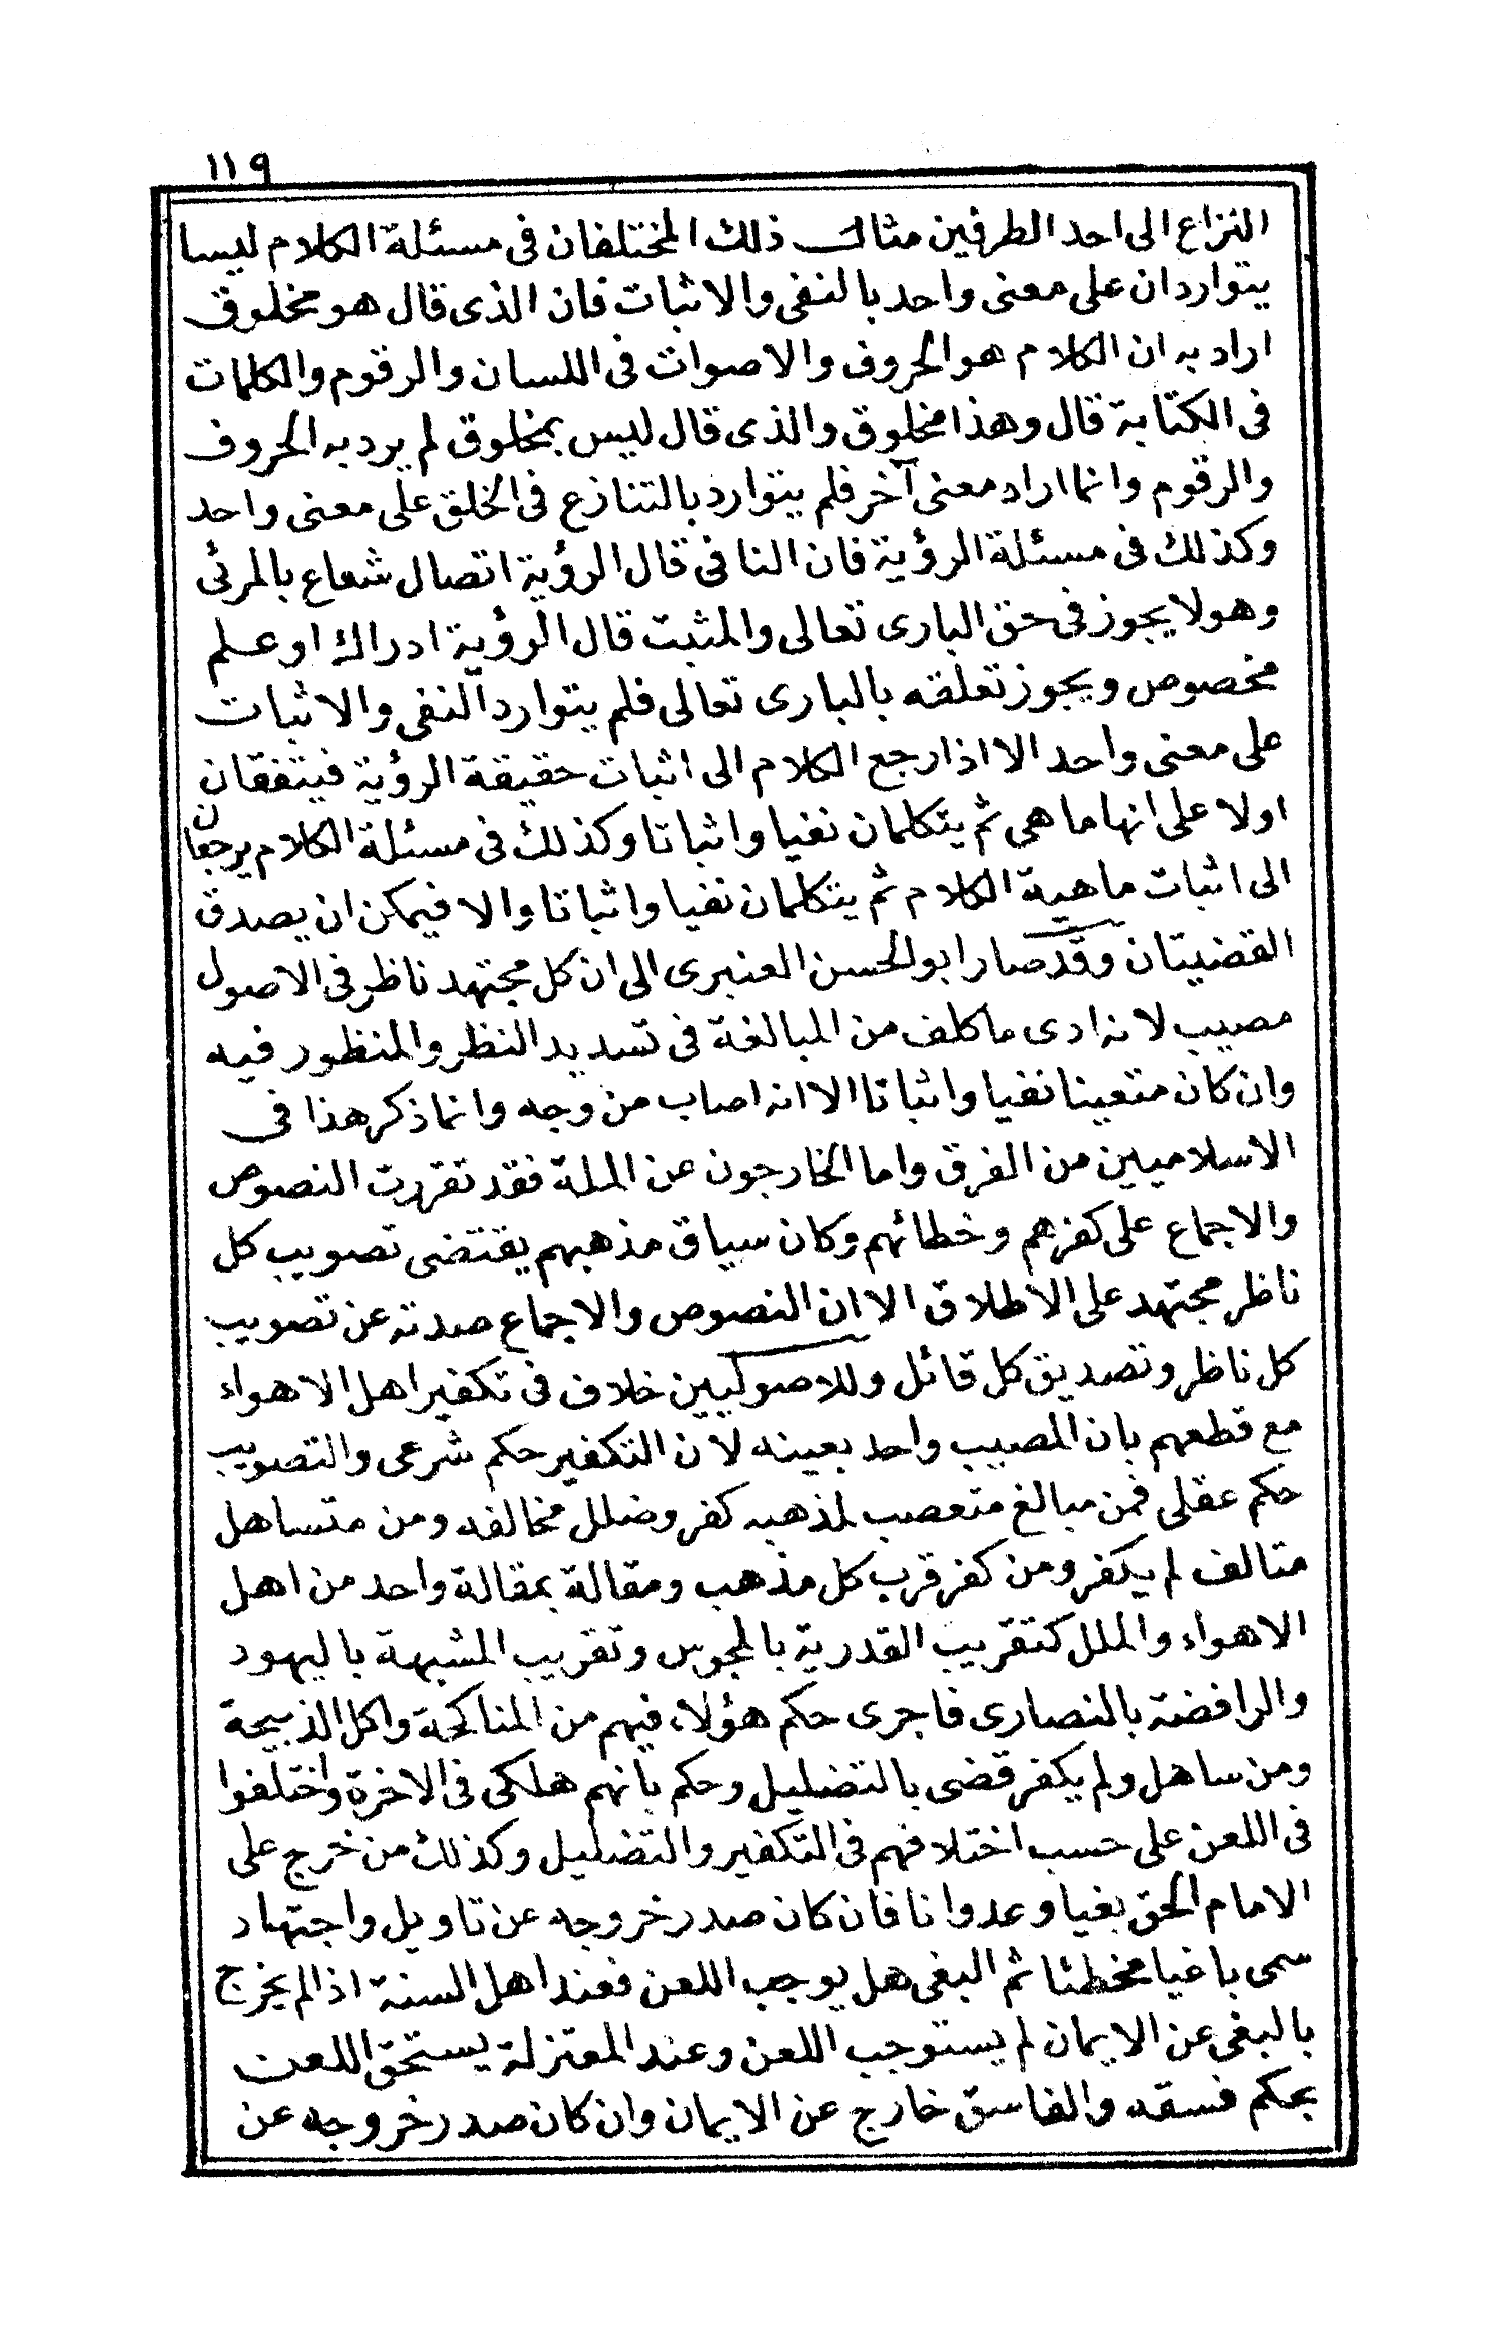 ١١٩
النزاع الى احد الطرفين مثال ذلك المختلفان فى مسئلة الكلام ليسا
يتواردان على معنى واحد بالنفى والاثبات فان الذى قال هو مخلوق
اراد به ان الكلام هو الحروف والاصوات فى اللسان والرقوم والكلمات
فى الكتابة قال وهذا مخلوق والذى قال ليس بمخلوق لم يرد به الحروف
والرقوم وانما اراد معنى آخر فلم يتوارد بالتنازع فى الخلق على معنى واحد
وكذلك فى مسئلة الرؤية فان النافى قال الرؤية اتصال شعاع بالمرئى
وهو لا يجوز فى حق البارى تعالى والمثبت قال الرؤية ادراك او علم
مخصوص ويجوز تعلقه بالبارى تعالى فلم يتوارد النفى والاثبات
على معنى واحد الا اذا رجع الكلام الى اثبات حقيقة الرؤية فيتفقان
اولا على انها ما هى ثم يتكلمان نفيا واثباتا وكذلك فى مسئلة الكلام يرجعان
الى اثبات ماهية الكلام ثم يتكلمان نفيا واثباتا والا فيمكن ان يصدق
القضيتان وقد صار ابو الحسن العنبرى الى ان كل مجتهد ناظر فى الاصول
مصيب لانه ادى ما كلف من المبالغة فى تسديد النظر والمنظور فيه
وان كان متعينا نفيا واثباتا الا انه اصاب من وجه وانما ذكر هذا فى
الاسلاميين من الفرق واما الخارجون عن الملة فقد تقررت النصوص
والاجماع على كفرهم وخطائهم وكان سياق مذهبهم يقتضى تصويب كل
ناظر مجتهد على الاطلاق الا ان النصوص والاجماع صدته عن تصويب
كل ناظر وتصديق كل قائل وللاصوليين خلاف فى تكفير اهل الاهواء
مع قطعهم بان المصيب واحد بعينه لان التكفير حكم شرعى والتصويب
حكم عقلى فمن مبالغ متعصب لمذهبه كفر وضلل مخالفه ومن متساهل
متالف لم يكفر ومن كفر قرب كل مذهب ومقالة بمقالة واحد من اهل
الاهواء والملل كتقريب القدرية بالمجوس وتقريب المشبهة باليهود
والرافضة بالنصارى فاجرى حكم هؤلاء فيهم من المناكحة واكل الذبيحة
ومن ساهل ولم يكفر قضى بالتضليل وحكم بانهم هلكى فى الاخرة واختلفوا
فى اللعن على حسب اختلافهم فى التكفير والتضليل وكذلك من خرج على
الامام الحق بغيا وعدوانا فان كان صدر خروجه عن تاويل واجتهاد
سمى باغيا مخطئا ثم البغى هل يوجب اللعن فعند اهل السنة اذا لم يخرج
بالبغى عن الايمان لم يستوجب اللعن وعند المعتزلة يستحق اللعن
بحكم فسقه والفاسق خارج عن الايمان وان كان صدر خروجه عن